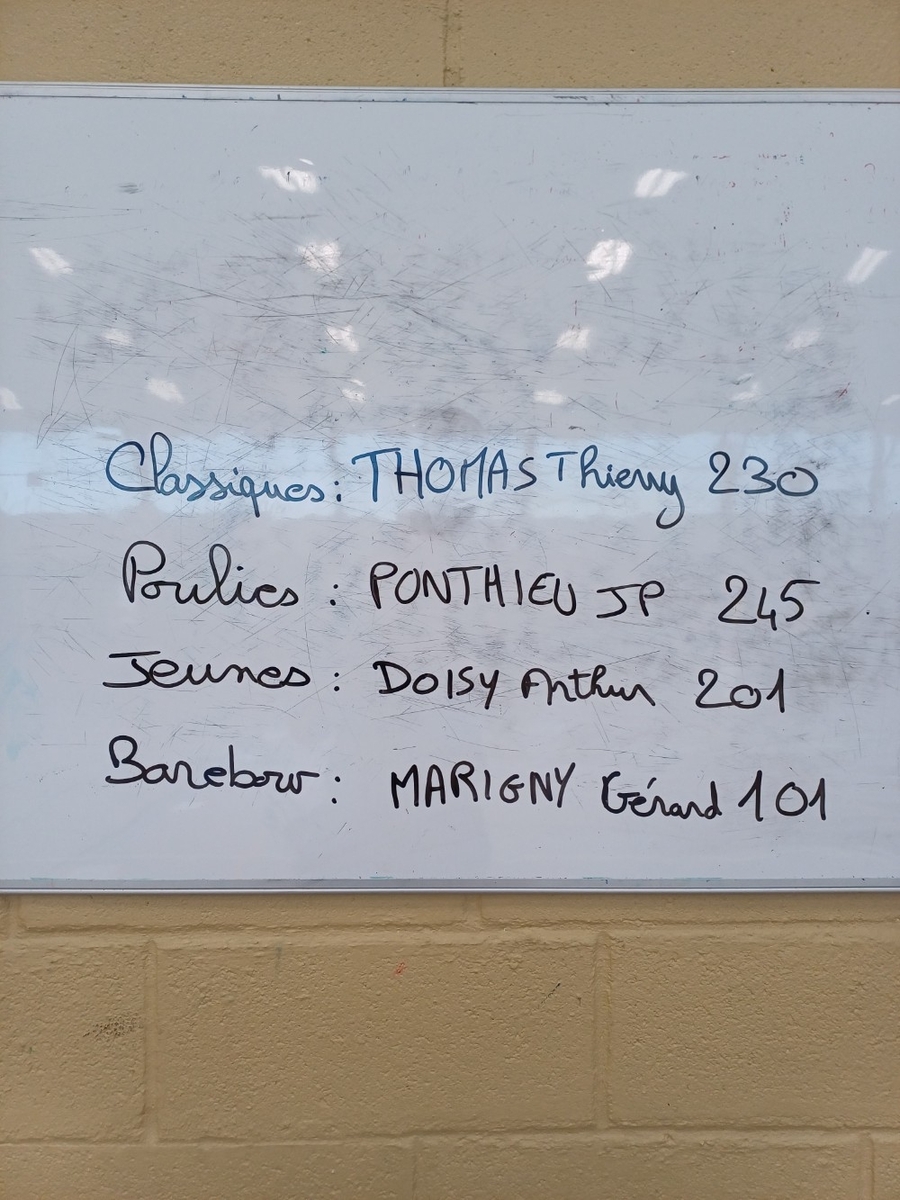 Classiques: THOMAS Thierry 230
Poulies : PONTHIEU JP 245
Jeunes : DOISY Arthur 201
Barebow : MARIGNY Gérard 101